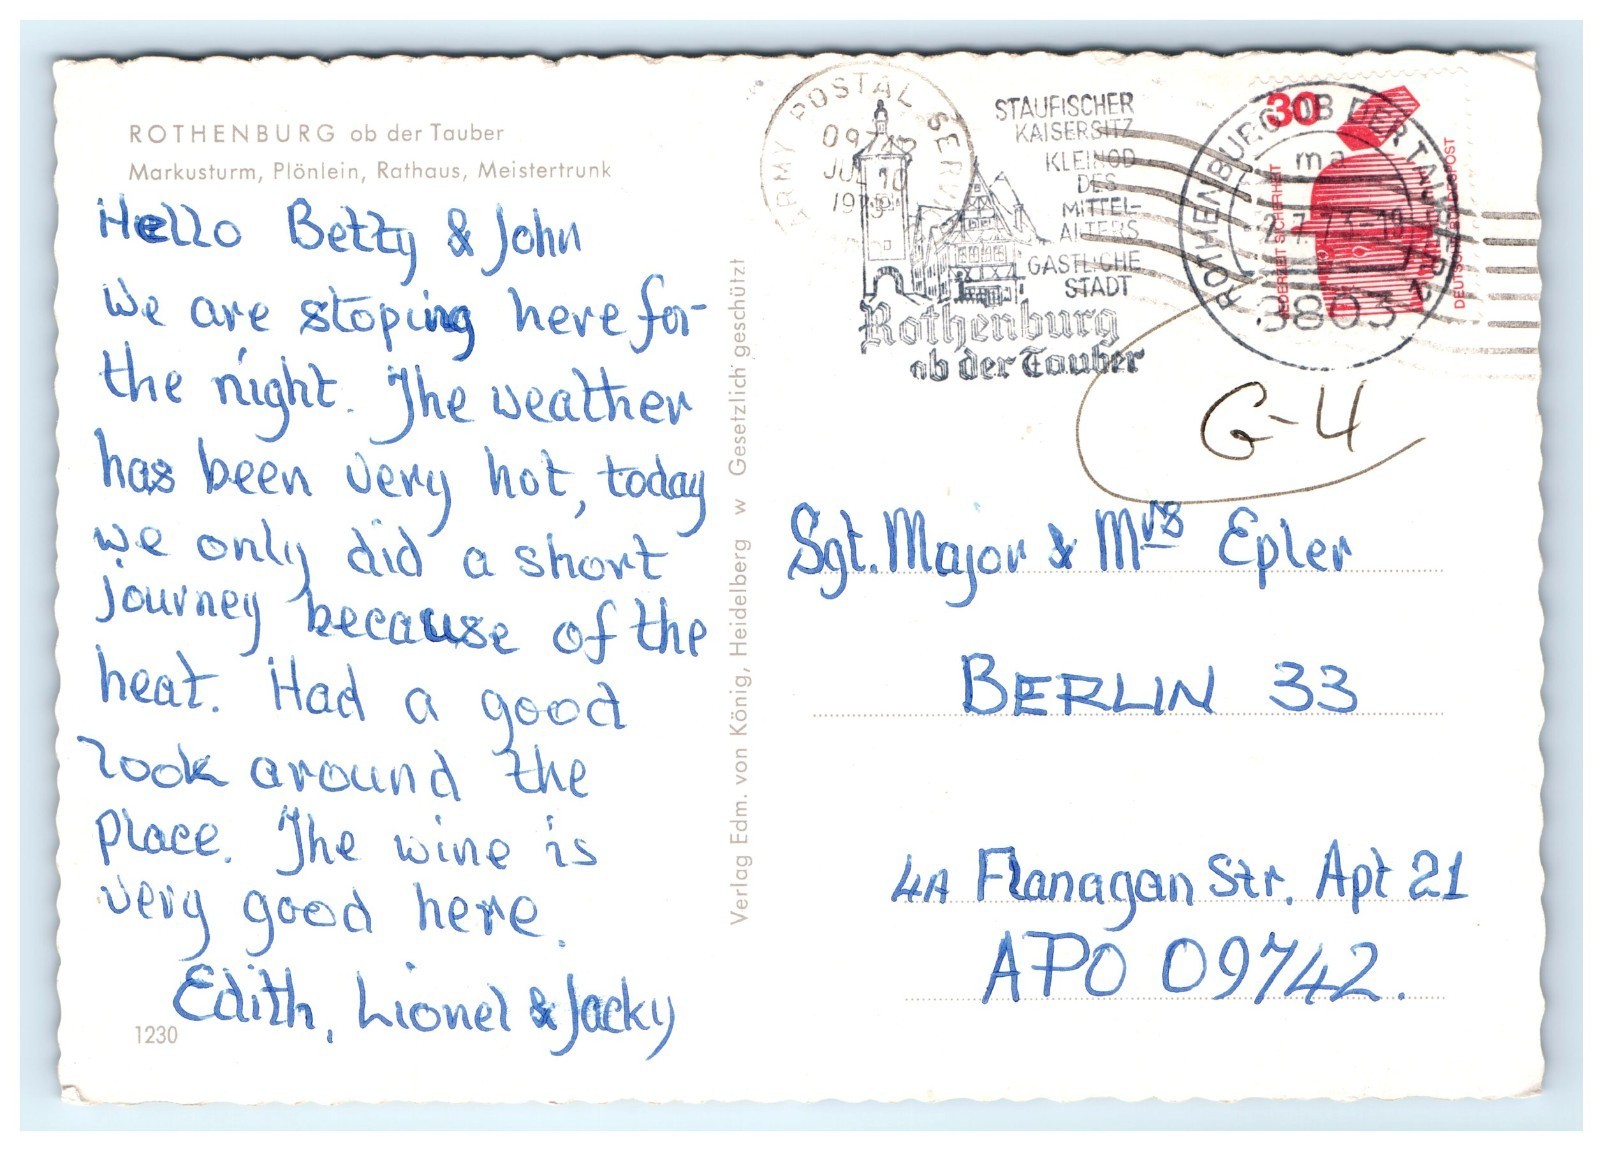 ROTHENBURG ob der Tauber
Markusturm, Plönlein, Rathaus, Meistertrunk
Hello Betty & John
We are stoping here for
the night. The weather
has been very hot, today
we only did a short
journey because of the
heat. Had a good
look around the
place. The wine is
very good here.
Edith, Lionel & Jacky
1230
Verlag Edm. von König, Heidelberg w Gesetzlich geschützt
ARMY POSTAL SERV
09742
JUL 10
1973
STAUFISCHER
KAISERSITZ
KLEINOD
DES
MITTEL-
ALTERS
GASTLICHE
STADT
Rothenburg
ob der Tauber
ROTHENBURG OB DER TAUBER
ma
7.73-19
8803
1
30
JEDERZEIT SICHERHEIT
DEUTSCHE BUNDESPOST
G-4
Sgt. Major & Mrs Epler
BERLIN 33
4A Flanagan Str. Apt 21
APO 09742.